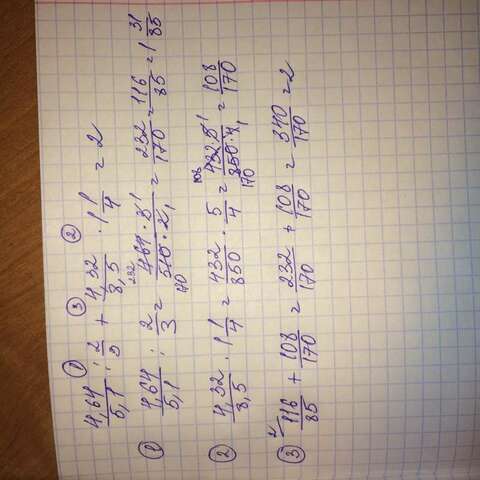 ① ③ ②
4,64/5,1 : 2/3 + 4,32/8,5 · 1 1/4 = 2
① 4,64/5,1 : 2/3 = 464 · 3/510 · 2 = 232/170 = 116/85 = 1 31/85
② 4,32/8,5 · 1 1/4 = 432/850 · 5/4 = 432 · 5/850 · 4 = 108/170
③ 116/85 + 108/170 = 232/170 + 108/170 = 340/170 = 2